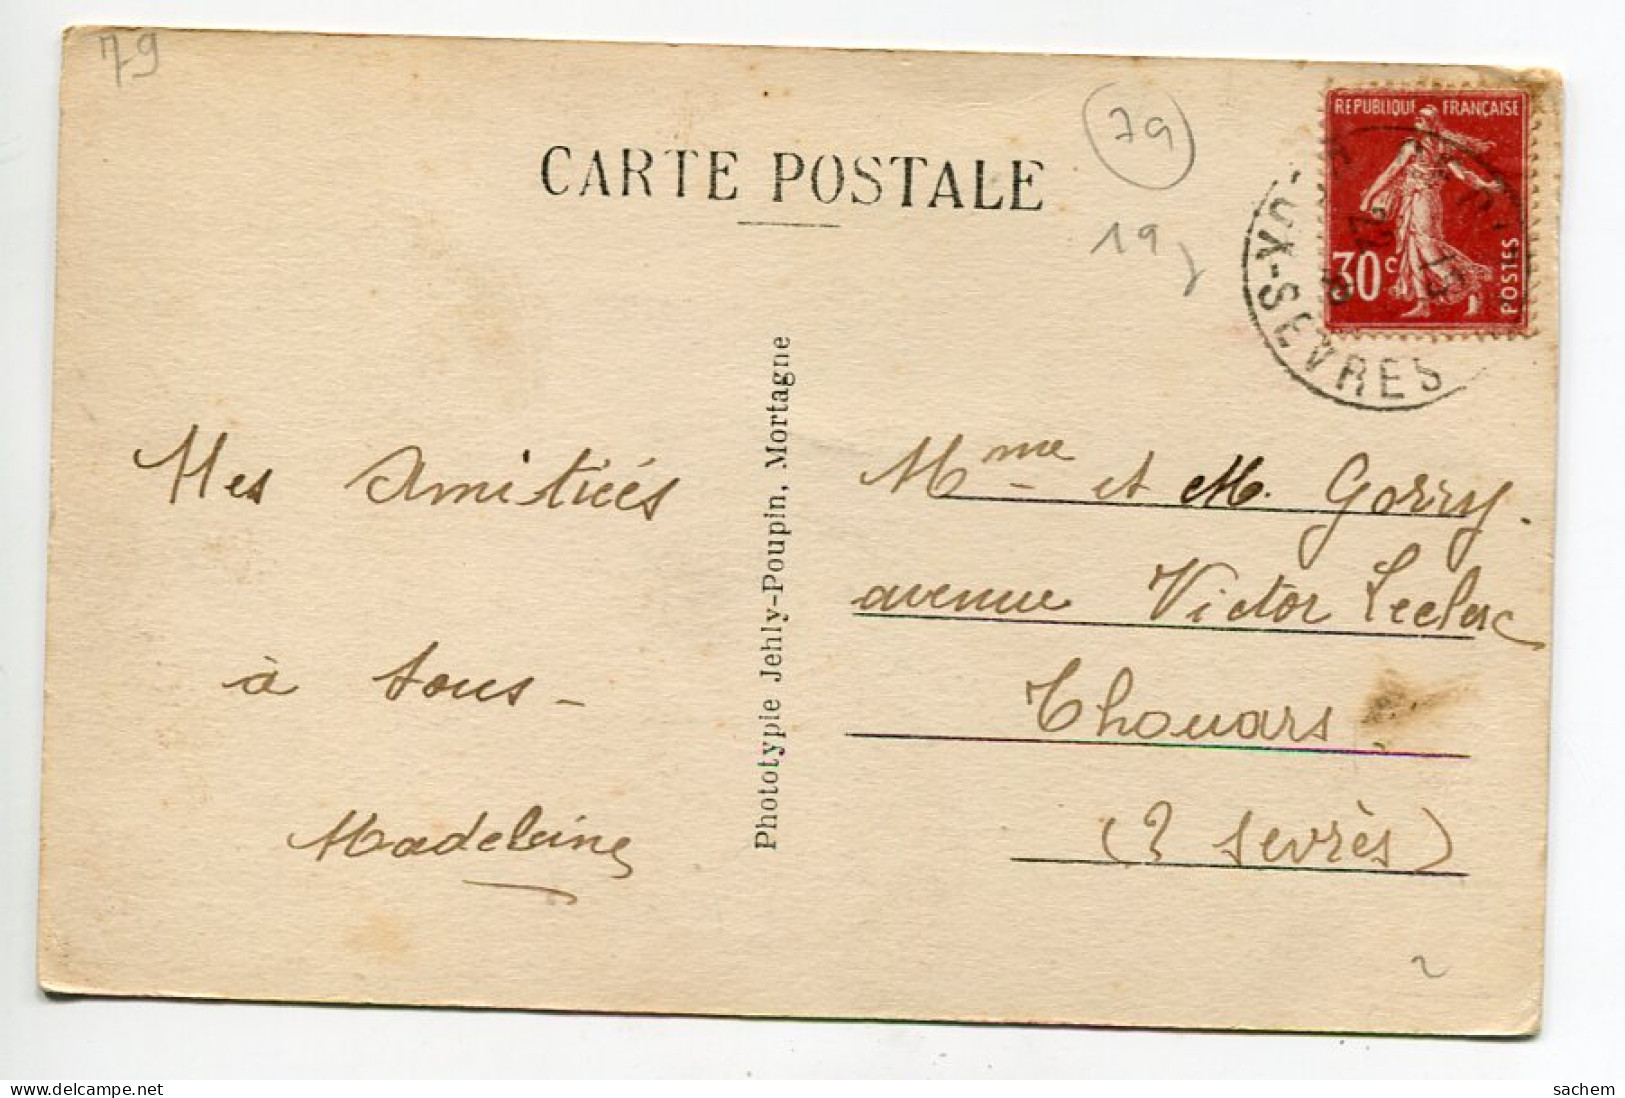 79
CARTE POSTALE
79
19
REPUBLIQUE FRANÇAISE
30c
POSTES
UX-SEVRES
Mes Amitiées
à tous -
Madeleine
Phototypie Jehly-Poupin, Mortagne
Mme et M. Gorry.
avenue Victor Leclerc
Thouars
(2 Sevrès)
delcampe.net
sachem